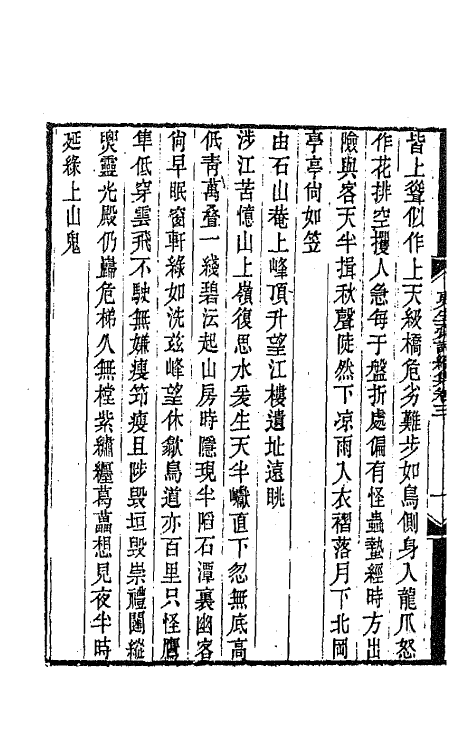 皆上聳似作上天級橋危劣難步如鳥側身入龍爪怒
作花排空攫人急每于盤折處偏有怪蟲蟄經時方出
險與客天半揖秋聲陡然下凉雨入衣褶落月下北岡
亭亭尙如笠
由石山菴上峰頂升望江樓遺址遠眺
涉江苦憶山上嶺復思水爰生天半巘直下忽無底高
低靑萬叠一綫碧沄起山房時隱現半䧟石潭裏幽客
尙早眠窗軒綠如洗玆峰望休歇鳥道亦百里只怪鷹
隼低穿雲飛不駛無嫌瘦筇瘦且陟毀垣毀崇禮闢縱
奧靈光殿仍巋危梯久無樘紫繡纒葛藟想見夜半時
延緣上山鬼
更生齋詩續集卷三
一